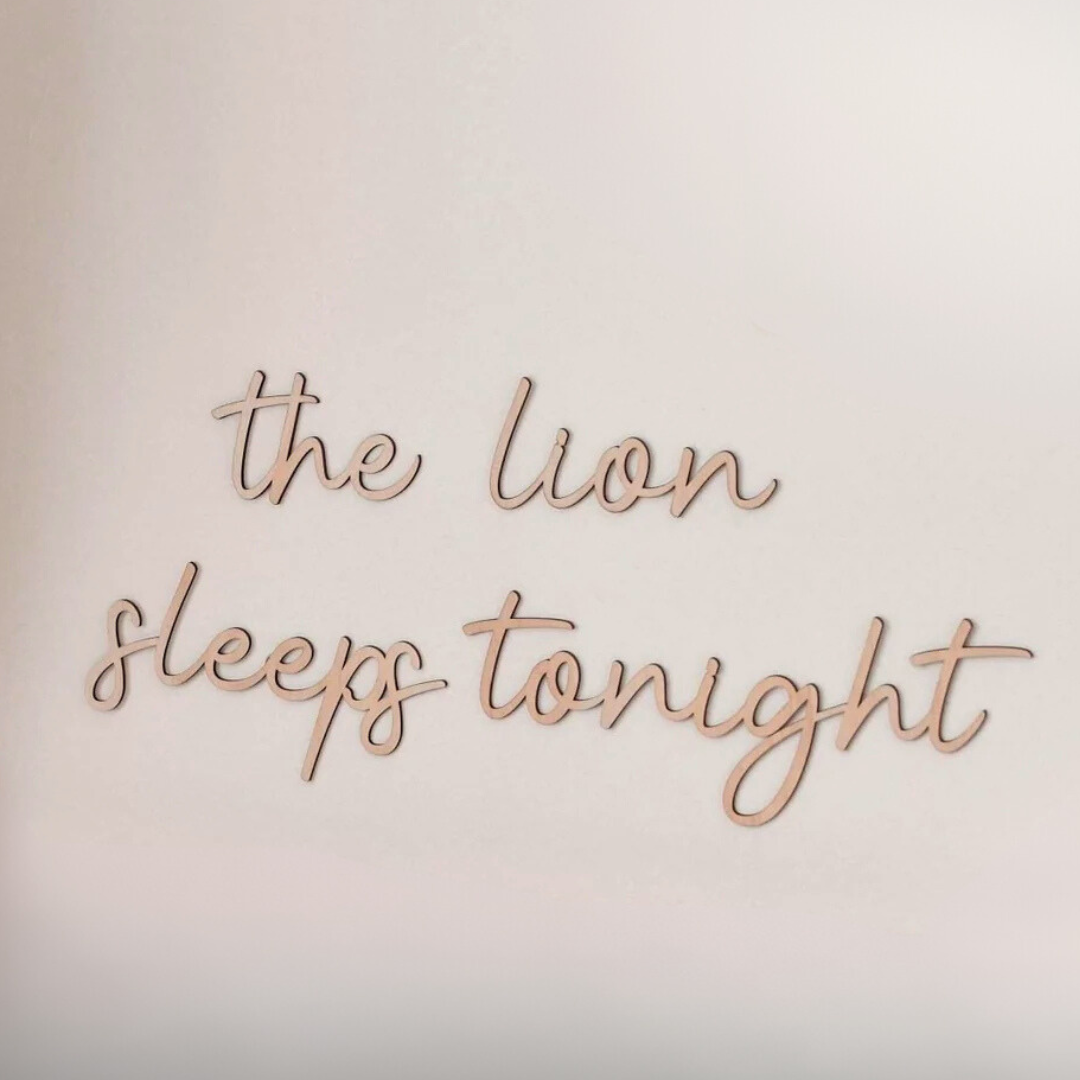 the lion
sleeps tonight